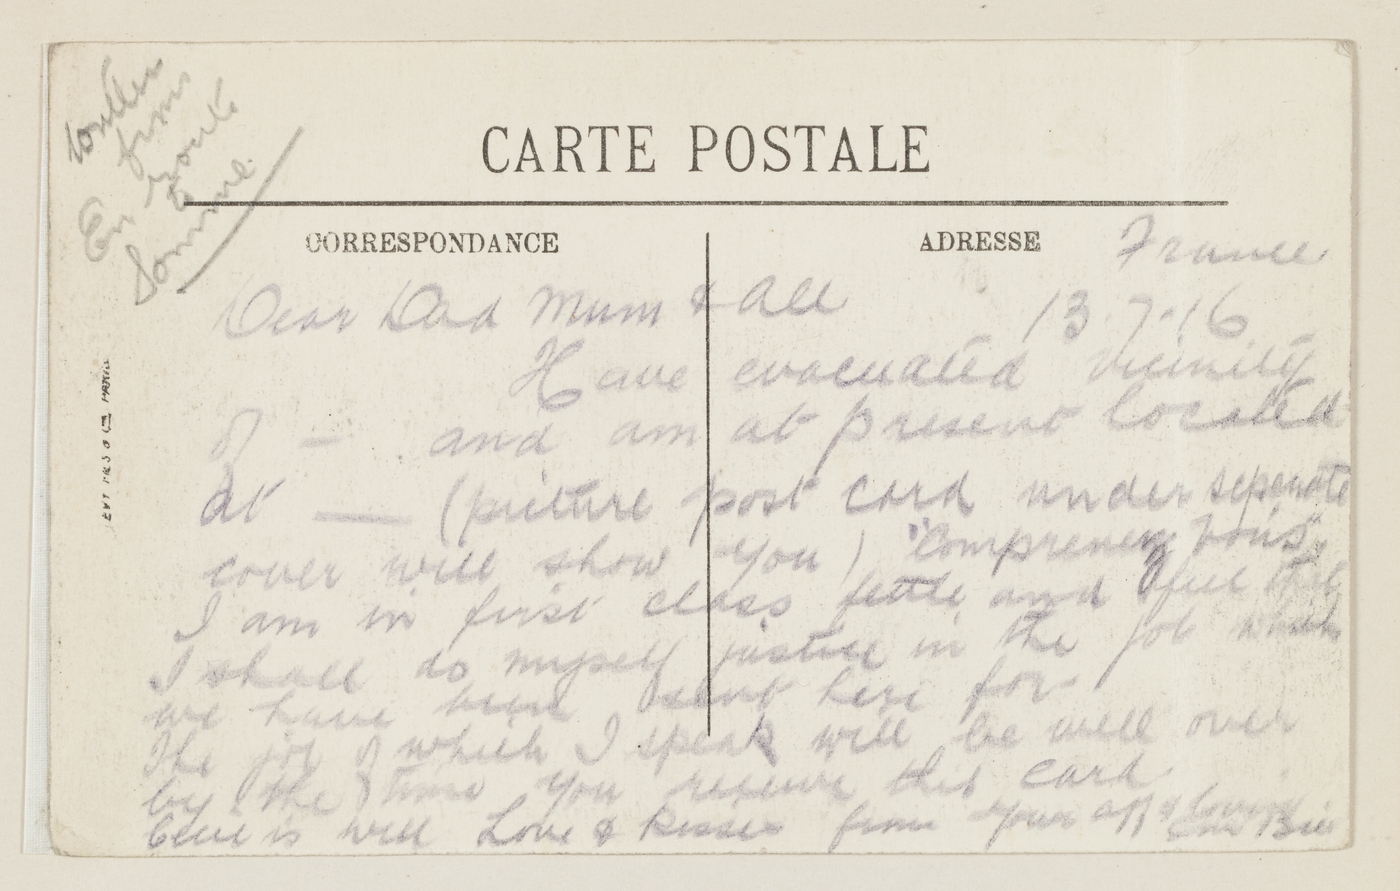 written
from
En route
to
Somme.
CARTE POSTALE
CORRESPONDANCE
ADRESSE
France
13.7.16
Dear Dad Mum & All
Have evacuated vicinity
of — and am at present located
at — (picture post card under separate
cover will show you) "Comprenez vous".
I am in first class fettle and feel that
I shall do myself justice in the job which
we have been sent here for
The job of which I speak will be well over
by the time you receive this card
Clive is well Love & Kisses from your aff loving Bro